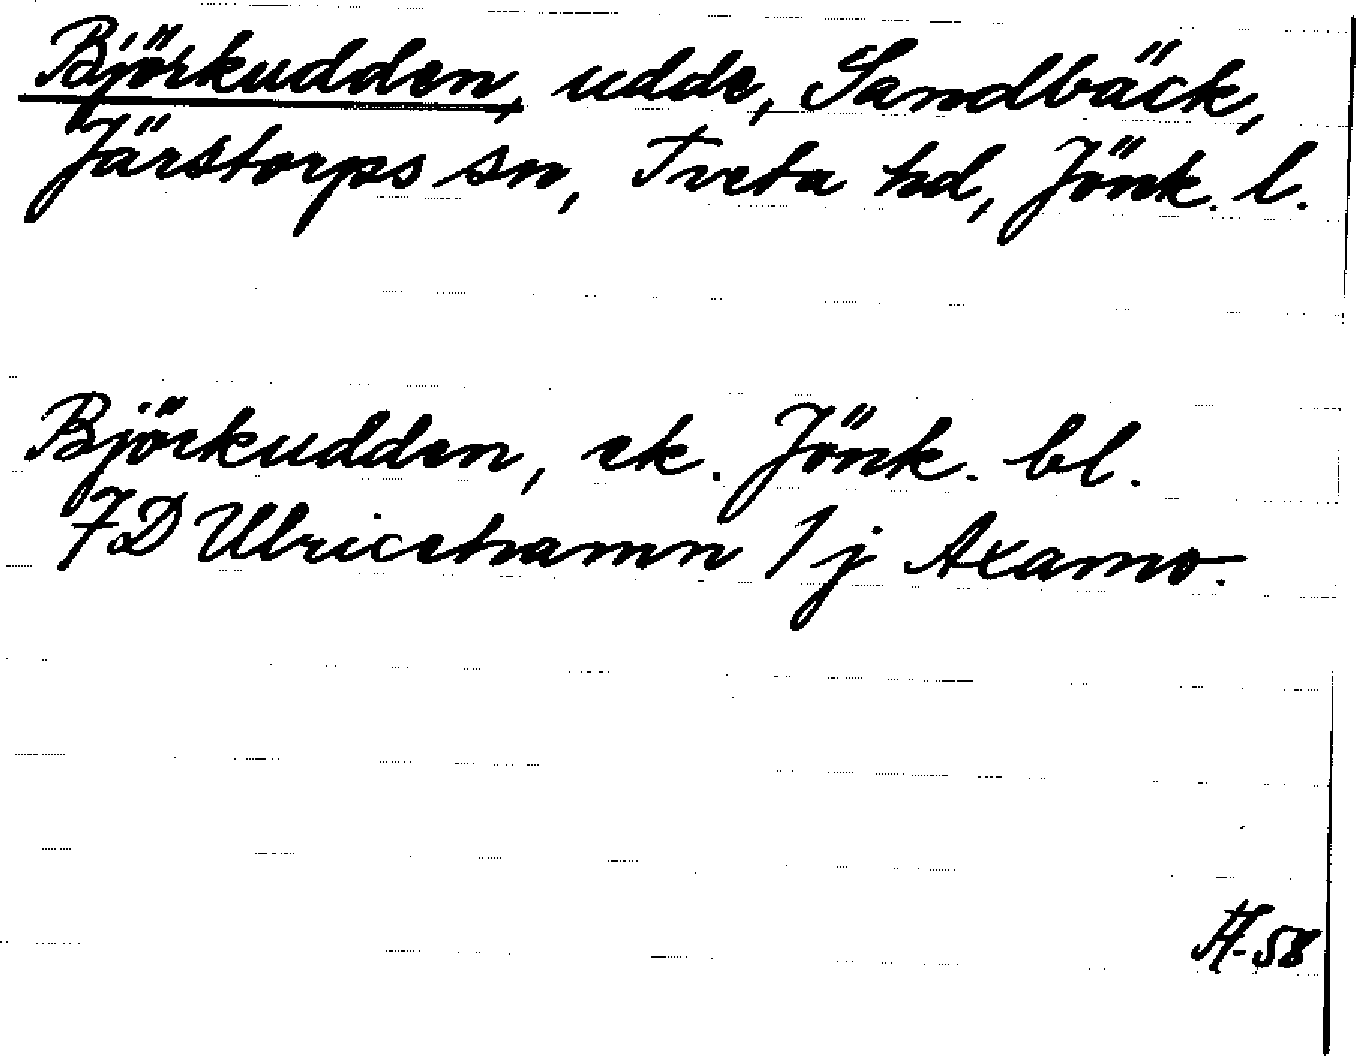 Björkudden, udde, Sandbäck,
Järstorps sn, Tveta hd, Jönk. l.
Björkudden, ek. Jönk. bl.
7D Ulricehamn 1j Axamo.
H-58